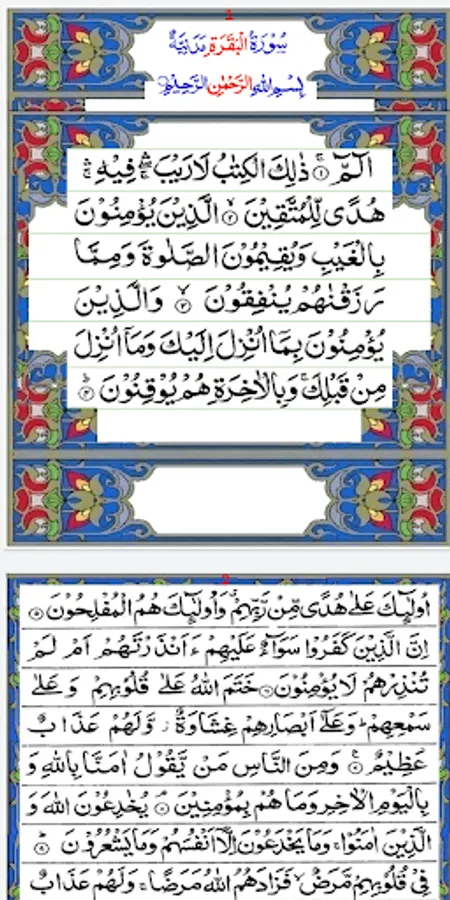 1
سُوْرَةُ الْبَقَرَةِ مَدَنِيَّةٌ
بِسْمِ اللهِ الرَّحْمٰنِ الرَّحِيْمِ
الٓمّٓ ۚ﴿۱﴾ ذٰلِكَ الْكِتٰبُ لَا رَيْبَ ۛۖ فِيْهِ ۛۚ
هُدًى لِّلْمُتَّقِيْنَ ۙ﴿۲﴾ الَّذِيْنَ يُؤْمِنُوْنَ
بِالْغَيْبِ وَيُقِيْمُوْنَ الصَّلٰوةَ وَمِمَّا
رَزَقْنٰهُمْ يُنْفِقُوْنَ ۙ﴿۳﴾ وَالَّذِيْنَ
يُؤْمِنُوْنَ بِمَآ اُنْزِلَ اِلَيْكَ وَمَآ اُنْزِلَ
مِنْ قَبْلِكَ ۚ وَبِالْاٰخِرَةِ هُمْ يُوْقِنُوْنَ ؕ﴿۴﴾
2
اُولٰٓئِكَ عَلٰى هُدًى مِّنْ رَّبِّهِمْ ۗ وَاُولٰٓئِكَ هُمُ الْمُفْلِحُوْنَ ﴿۵﴾
اِنَّ الَّذِيْنَ كَفَرُوْا سَوَآءٌ عَلَيْهِمْ ءَاَنْذَرْتَهُمْ اَمْ لَمْ
تُنْذِرْهُمْ لَا يُؤْمِنُوْنَ ﴿۶﴾ خَتَمَ اللهُ عَلٰى قُلُوْبِهِمْ وَعَلٰى
سَمْعِهِمْ ؕ وَعَلٰٓى اَبْصَارِهِمْ غِشَاوَةٌ ؗ وَّلَهُمْ عَذَابٌ
عَظِيْمٌ ﴿۷﴾ وَمِنَ النَّاسِ مَنْ يَّقُوْلُ اٰمَنَّا بِاللهِ وَ
بِالْيَوْمِ الْاٰخِرِ وَمَا هُمْ بِمُؤْمِنِيْنَ ۘ﴿۸﴾ يُخٰدِعُوْنَ اللهَ وَ
الَّذِيْنَ اٰمَنُوْا ۚ وَمَا يَخْدَعُوْنَ اِلَّآ اَنْفُسَهُمْ وَمَا يَشْعُرُوْنَ ؕ﴿۹﴾
فِيْ قُلُوْبِهِمْ مَّرَضٌ ۙ فَزَادَهُمُ اللهُ مَرَضًا ۚ وَلَهُمْ عَذَابٌ